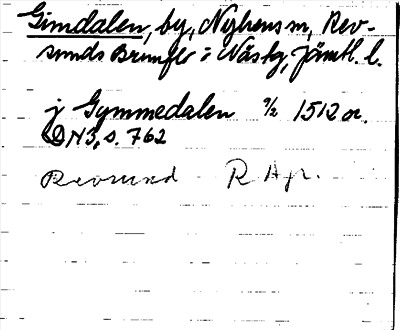 Gimdalen, by, Nyhems sn, Rev-
sunds Brunflo i Nästg, Jämtl. l.
j Gymmedalen 9/2 1512 or.
DN3, s. 762
Revsund R Hpl.